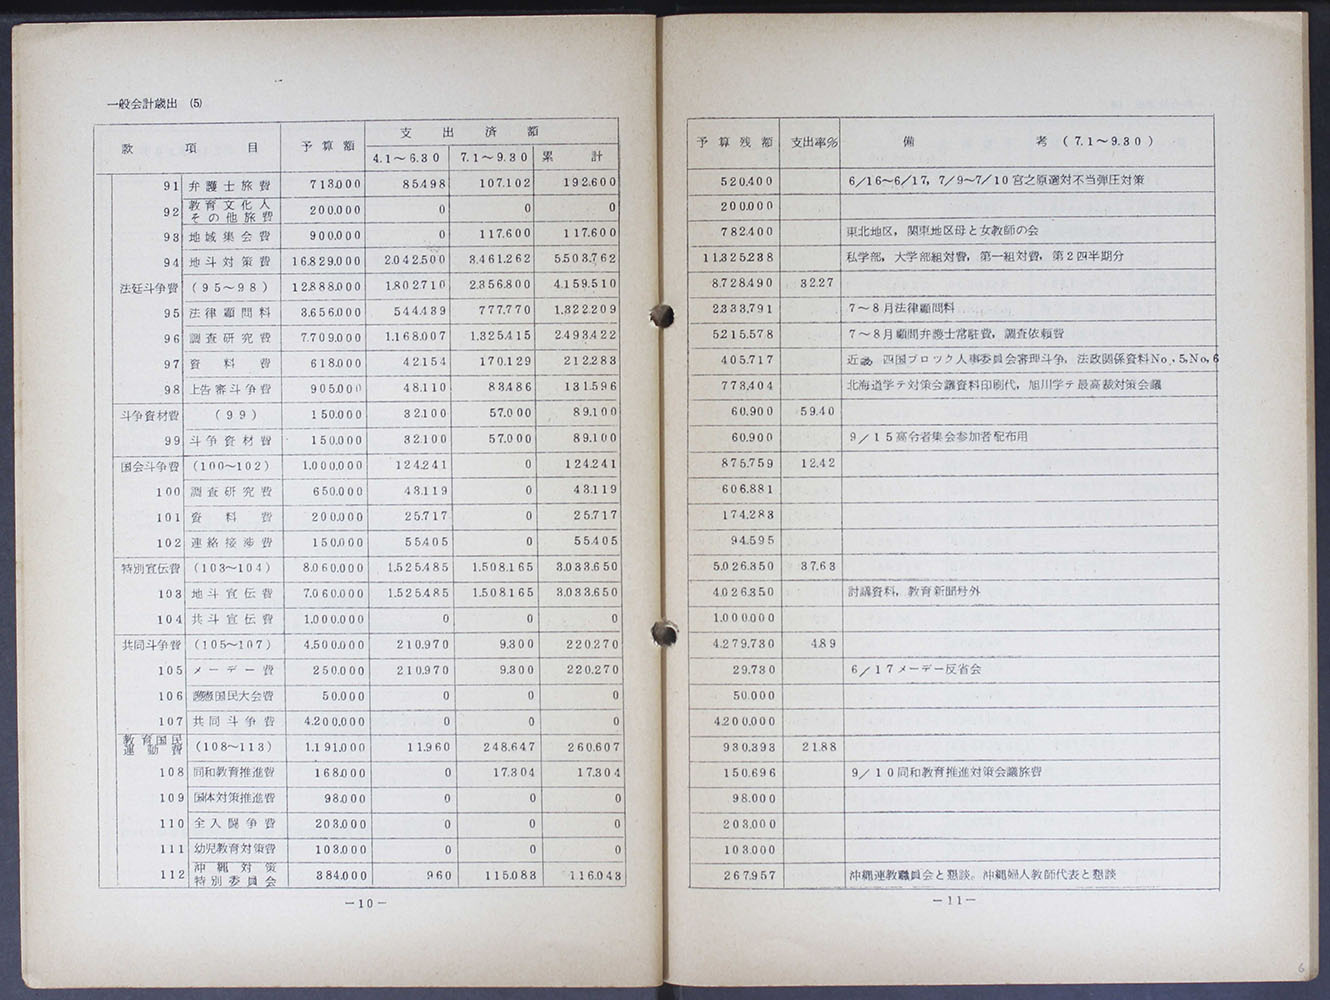 一般会計歳出 (5)
款 項 目 予算額 支出済額
4.1～6.30 7.1～9.30 累計
91 弁護士旅費 713,000 85,498 107,102 192,600
92 教育文化人その他旅費 200,000 0 0 0
93 地域集会費 900,000 0 117,600 117,600
94 地斗対策費 16,829,000 2,042,500 3,461,262 5,503,762
法廷斗争費 (95～98) 12,888,000 1,802,710 2,356,800 4,159,510
95 法律顧問料 3,656,000 544,439 777,770 1,322,209
96 調査研究費 7,709,000 1,168,007 1,325,415 2,493,422
97 資料費 618,000 42,154 170,129 212,283
98 上告審斗争費 905,000 48,110 83,486 131,596
斗争資材費 (99) 150,000 32,100 57,000 89,100
99 斗争資材費 150,000 32,100 57,000 89,100
国会斗争費 (100～102) 1,000,000 124,241 0 124,241
100 調査研究費 650,000 43,119 0 43,119
101 資料費 200,000 25,717 0 25,717
102 連絡接渉費 150,000 55,405 0 55,405
特別宣伝費 (103～104) 8,060,000 1,525,485 1,508,165 3,033,650
103 地斗宣伝費 7,060,000 1,525,485 1,508,165 3,033,650
104 共斗宣伝費 1,000,000 0 0 0
共同斗争費 (105～107) 4,500,000 210,970 9,300 220,270
105 メーデー費 250,000 210,970 9,300 220,270
106 護憲国民大会費 50,000 0 0 0
107 共同斗争費 4,200,000 0 0 0
教育国民運動費 (108～113) 1,191,000 11,960 248,647 260,607
108 同和教育推進費 168,000 0 17,304 17,304
109 国体対策推進費 98,000 0 0 0
110 全入闘争費 203,000 0 0 0
111 幼児教育対策費 103,000 0 0 0
112 沖縄対策特別委員会 384,000 960 115,083 116,043
－10－
予算残額 支出率% 備考 (7.1～9.30)
520,400 6/16～6/17，7/9～7/10宮之原選対不当弾圧対策
200,000
782,400 東北地区，関東地区母と女教師の会
11,325,238 私学部，大学部組対費，第一組対費，第2四半期分
8,728,490 32.27
2,333,791 7～8月法律顧問料
5,215,578 7～8月顧問弁護士常駐費，調査依頼費
405,717 近畿，四国ブロック人事委員会審理斗争，法政関係資料No.5,No.6
773,404 北海道学テ対策会議資料印刷代，旭川学テ最高裁対策会議
60,900 59.40
60,900 9/15高令者集会参加者配布用
875,759 12.42
606,881
174,283
94,595
5,026,350 37.63
4,026,350 討議資料，教育新聞号外
1,000,000
4,279,730 4.89
29,730 6/17メーデー反省会
50,000
4,200,000
930,393 21.88
150,696 9/10同和教育推進対策会議旅費
98,000
203,000
103,000
267,957 沖縄連教職員会と懇談。沖縄婦人教師代表と懇談
－11－
6